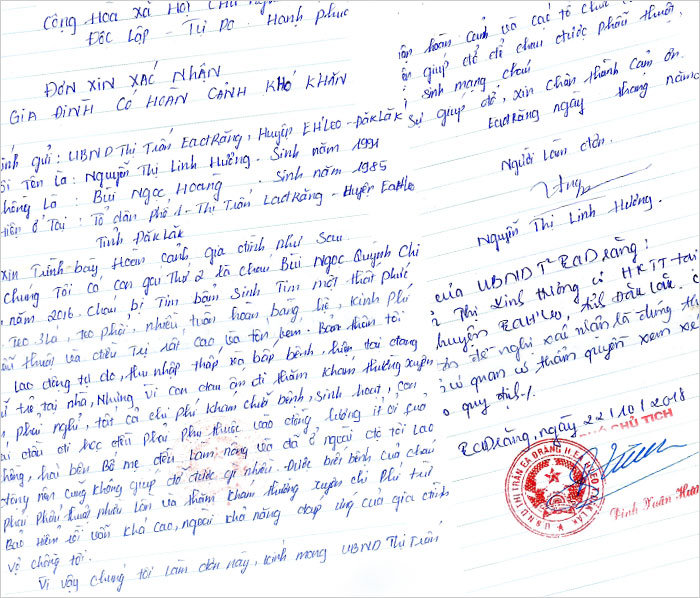 Cộng Hòa xã Hội Chủ
Độc Lập - Tự Do - Hạnh phúc
ĐƠN XIN XÁC NHẬN
GIA ĐÌNH CÓ HOÀN CẢNH KHÓ KHĂN
gửi : UBND Thị Trấn EaDRăng, Huyện EH'Leo - ĐăkLăk
Tên La : Nguyễn Thị Linh Hường - Sinh năm 1991
chồng La : Bùi Ngọc Hoàng - Sinh năm 1985
Hiện ở Tại : Tổ dân phố 1 - Thị Trấn EaDRăng - Huyện EaHleo
Tỉnh ĐăkLăk
xin Trình bày, Hoàn cảnh, gia đình như Sau
Chúng Tôi có con gái Thứ 2 là cháu Bùi Ngọc Quỳnh Chi
năm 2016. Cháu bị Tim bẩm Sinh Tim một thất phức
Teo 3 lá, Teo phổi, nhiều tuần hoàn bàng hệ, kinh phí
thuật và điều Trị rất cao và tốn kém. Bản thân tôi
lao động tự do, thu nhập thấp và bấp bênh, hiện tại đang
tử tại nhà, Nhưng Vì con đau ốm đi thăm khám thường xuyên
phải nghỉ, tất cả chi phí khám chữa bệnh, sinh hoạt, con
đầu đi học đều phải phụ thuộc vào đồng lương ít ỏi của
chồng, hai bên Bố mẹ đều làm nông và đã ở ngoài độ tôi lao
động nên cũng không giúp đỡ được gì nhiều. Được biết bệnh của cháu
phải phẫu thuật nhiều lần và thăm khám thường xuyên chi Phí trừ
Bảo Hiểm rồi vẫn khá cao, ngoài khả năng đáp ứng của gia đình
vợ chồng tôi.
Vì vậy chúng tôi làm đơn này, kính mong UBND Thị Trấn
hoàn cảnh và các tổ chức
giúp đỡ để cháu được phẫu thuật,
sinh mạng cháu
Sự giúp đỡ, xin chân thành cảm ơn.
EaDRăng ngày tháng năm 2
Người làm đơn.
Nguyễn Thị Linh Hường.
của UBND TT EaDrăng :
Thị Linh Hường có HKTT tại
huyện EaH'Leo, tỉnh Đắk Lắk.
đề nghị xác nhận là đúng
quan có thẩm quyền xem xét
quy định./.
EaDrăng, ngày 22/10/2018
CHỦ TỊCH
U.B.N.D THỊ TRẤN EA DRĂNG H. EA H'LEO T. ĐẮK LẮK